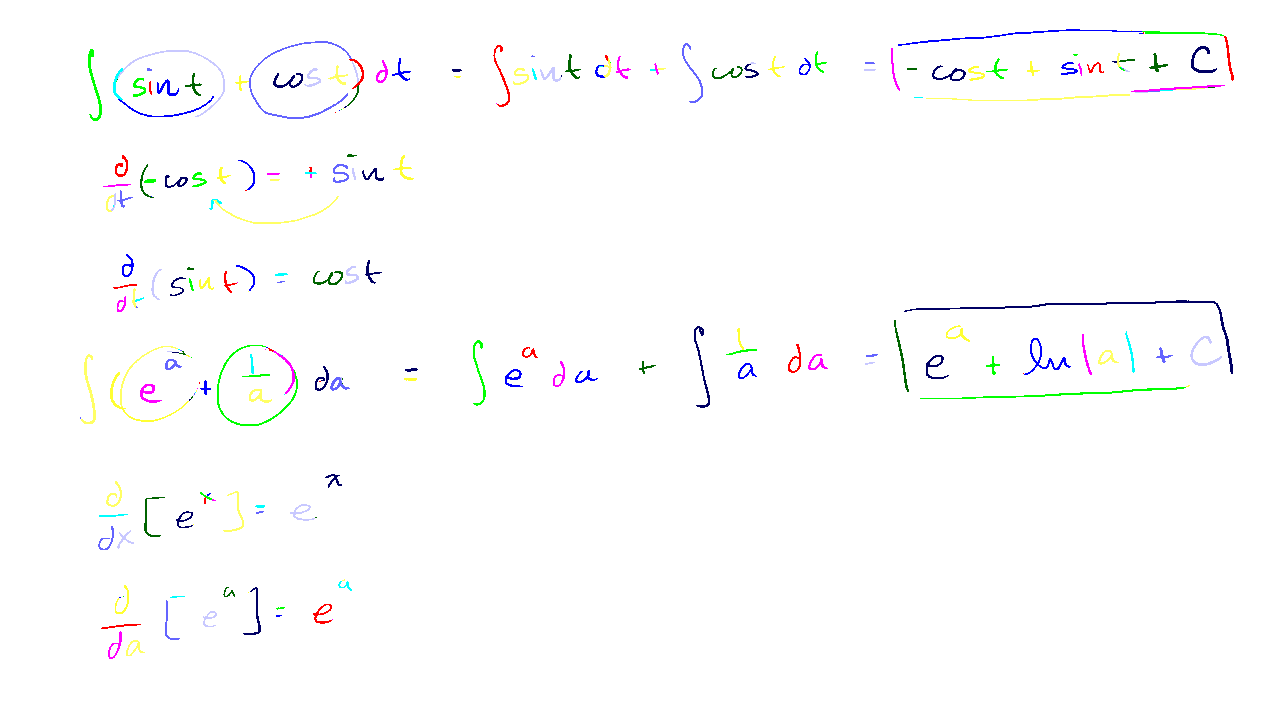 ∫ (sin t + cos t) dt = ∫ sin t dt + ∫ cos t dt = - cos t + sin t + C
d/dt (- cos t) = + sin t
d/dt (sin t) = cos t
∫ (e^a + 1/a) da = ∫ e^a da + ∫ 1/a da = e^a + ln |a| + C
d/dx [e^x] = e^x
d/da [e^a] = e^a